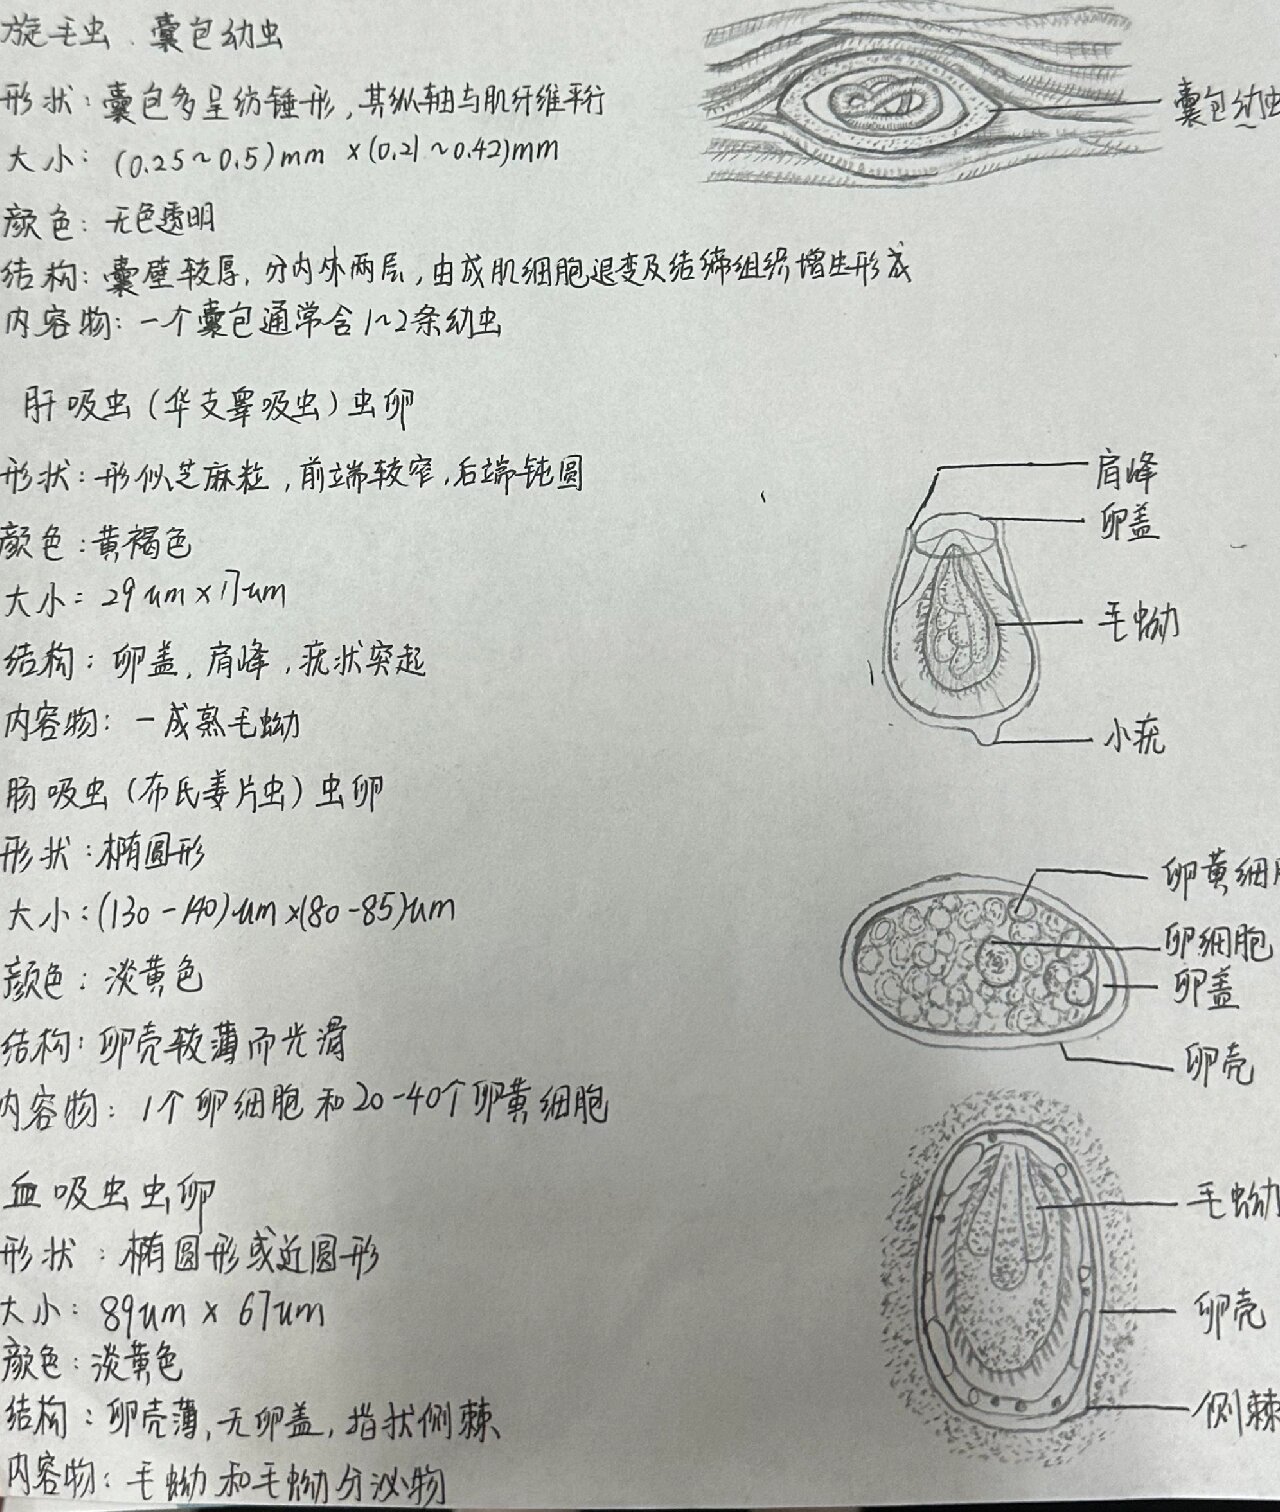 旋毛虫、囊包幼虫
形状：囊包多呈纺锤形，其纵轴与肌纤维平行
大小：(0.25～0.5)mm ×(0.21～0.42)mm
颜色：无色透明
结构：囊壁较厚，分内外两层，由成肌细胞退变及结缔组织增生形成
内容物：一个囊包通常含1～2条幼虫
囊包幼虫
肝吸虫（华支睾吸虫）虫卵
形状：形似芝麻粒，前端较窄，后端钝圆
颜色：黄褐色
大小：29um×17um
结构：卵盖，肩峰，疣状突起
内容物：一成熟毛蚴
肩峰
卵盖
毛蚴
小疣
肠吸虫（布氏姜片虫）虫卵
形状：椭圆形
大小：(130-140)um×(80-85)um
颜色：淡黄色
结构：卵壳较薄而光滑
内容物：1个卵细胞和20-40个卵黄细胞
卵黄细胞
卵细胞
卵盖
卵壳
血吸虫虫卵
形状：椭圆形或近圆形
大小：89um × 67um
颜色：淡黄色
结构：卵壳薄，无卵盖，指状侧棘
内容物：毛蚴和毛蚴分泌物
毛蚴
卵壳
侧棘